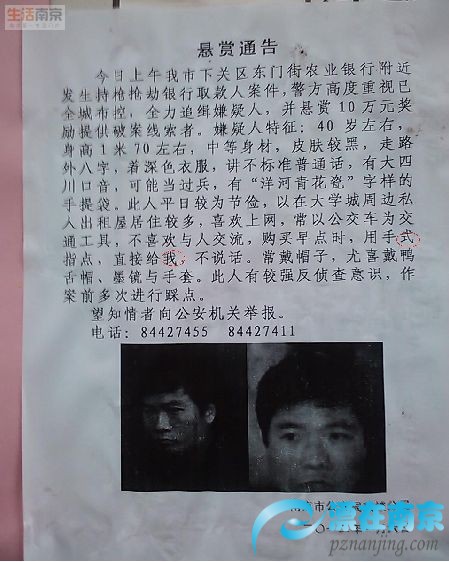 生活南京
悬赏通告
今日上午我市下关区东门街农业银行附近
发生持枪抢劫银行取款人案件，警方高度重视已
全城布控，全力追缉嫌疑人，并悬赏10万元奖
励提供破案线索者。嫌疑人特征：40岁左右，
身高1米70左右，中等身材，皮肤较黑，走路
外八字，着深色衣服，讲不标准普通话，有大四
川口音，可能当过兵，有“洋河青花瓷”字样的
手提袋。此人平日较为节俭，以在大学城周边私
人出租屋居住较多，喜欢上网，常以公交车为交
通工具，不喜欢与人交流，购买早点时，用手式
指点，直接给我，不说话。常戴帽子，尤喜戴鸭
舌帽、墨镜与手套。此人有较强反侦查意识，作
案前多次进行踩点。
望知情者向公安机关举报。
电话：84427455 84427411
漂在南京
pznanjing.com